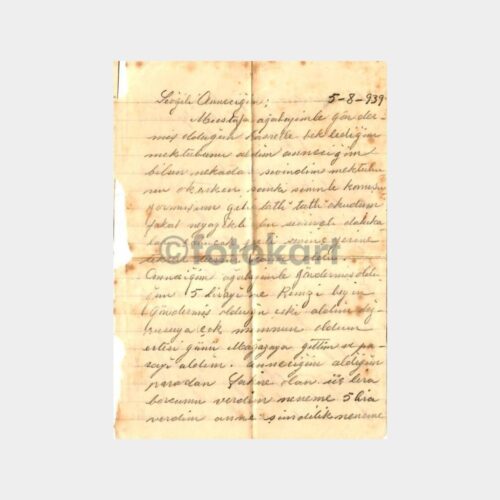 Sevgili Anneciğim; 5-8-939
Mustafa ağabeyimle gönder-
miş olduğun hasretle beklediğim
mektubunu aldım anneciğim
bilsen nekadar sevindim mektubu
nu okurken sanki seninle konuşu
yormuşum gibi tatlı tatlı okudum
fakat
©fotokart
Anneciğim ağabeyimle göndermiş oldu-
ğun 5 lirayı ve Remzi beyin
göndermiş olduğu
çok memnun oldum
ertesi günü Mağazaya gittim ve pa-
rayı aldım. anneciğim aldığım
paradan olan üç lira
borcumu verdim neneme 5 lira
verdim anne şimdilik neneme